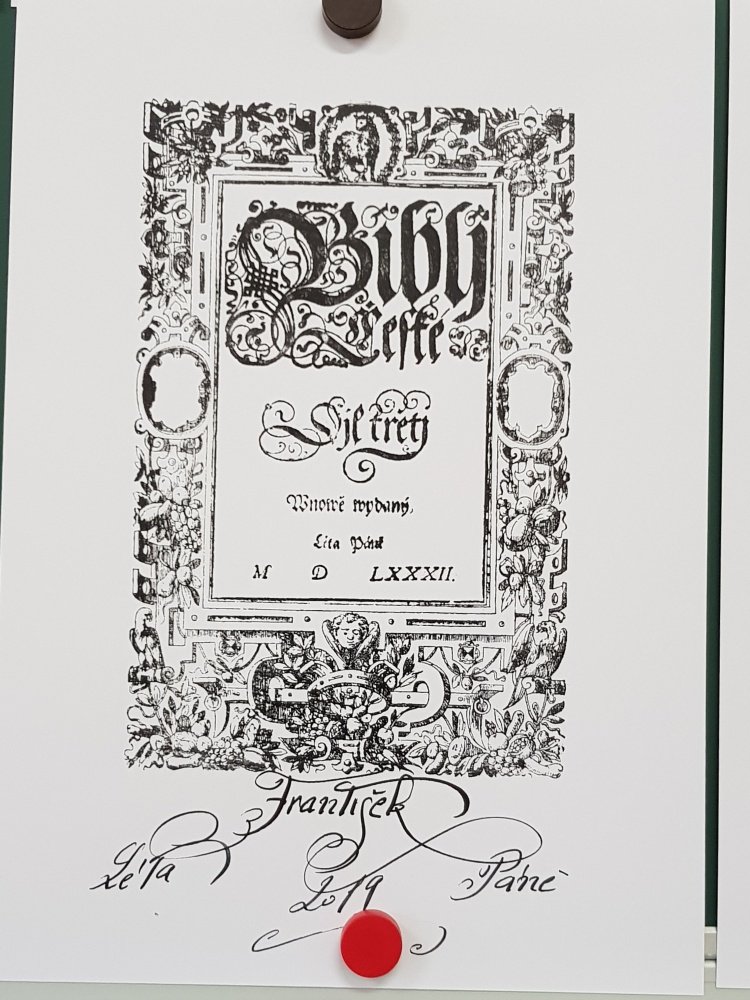 Biblj
Čeſké
Djl třetj
Wnowě wydaný,
Léta Páně
M D LXXXII.
František
Léta 2019 Páně